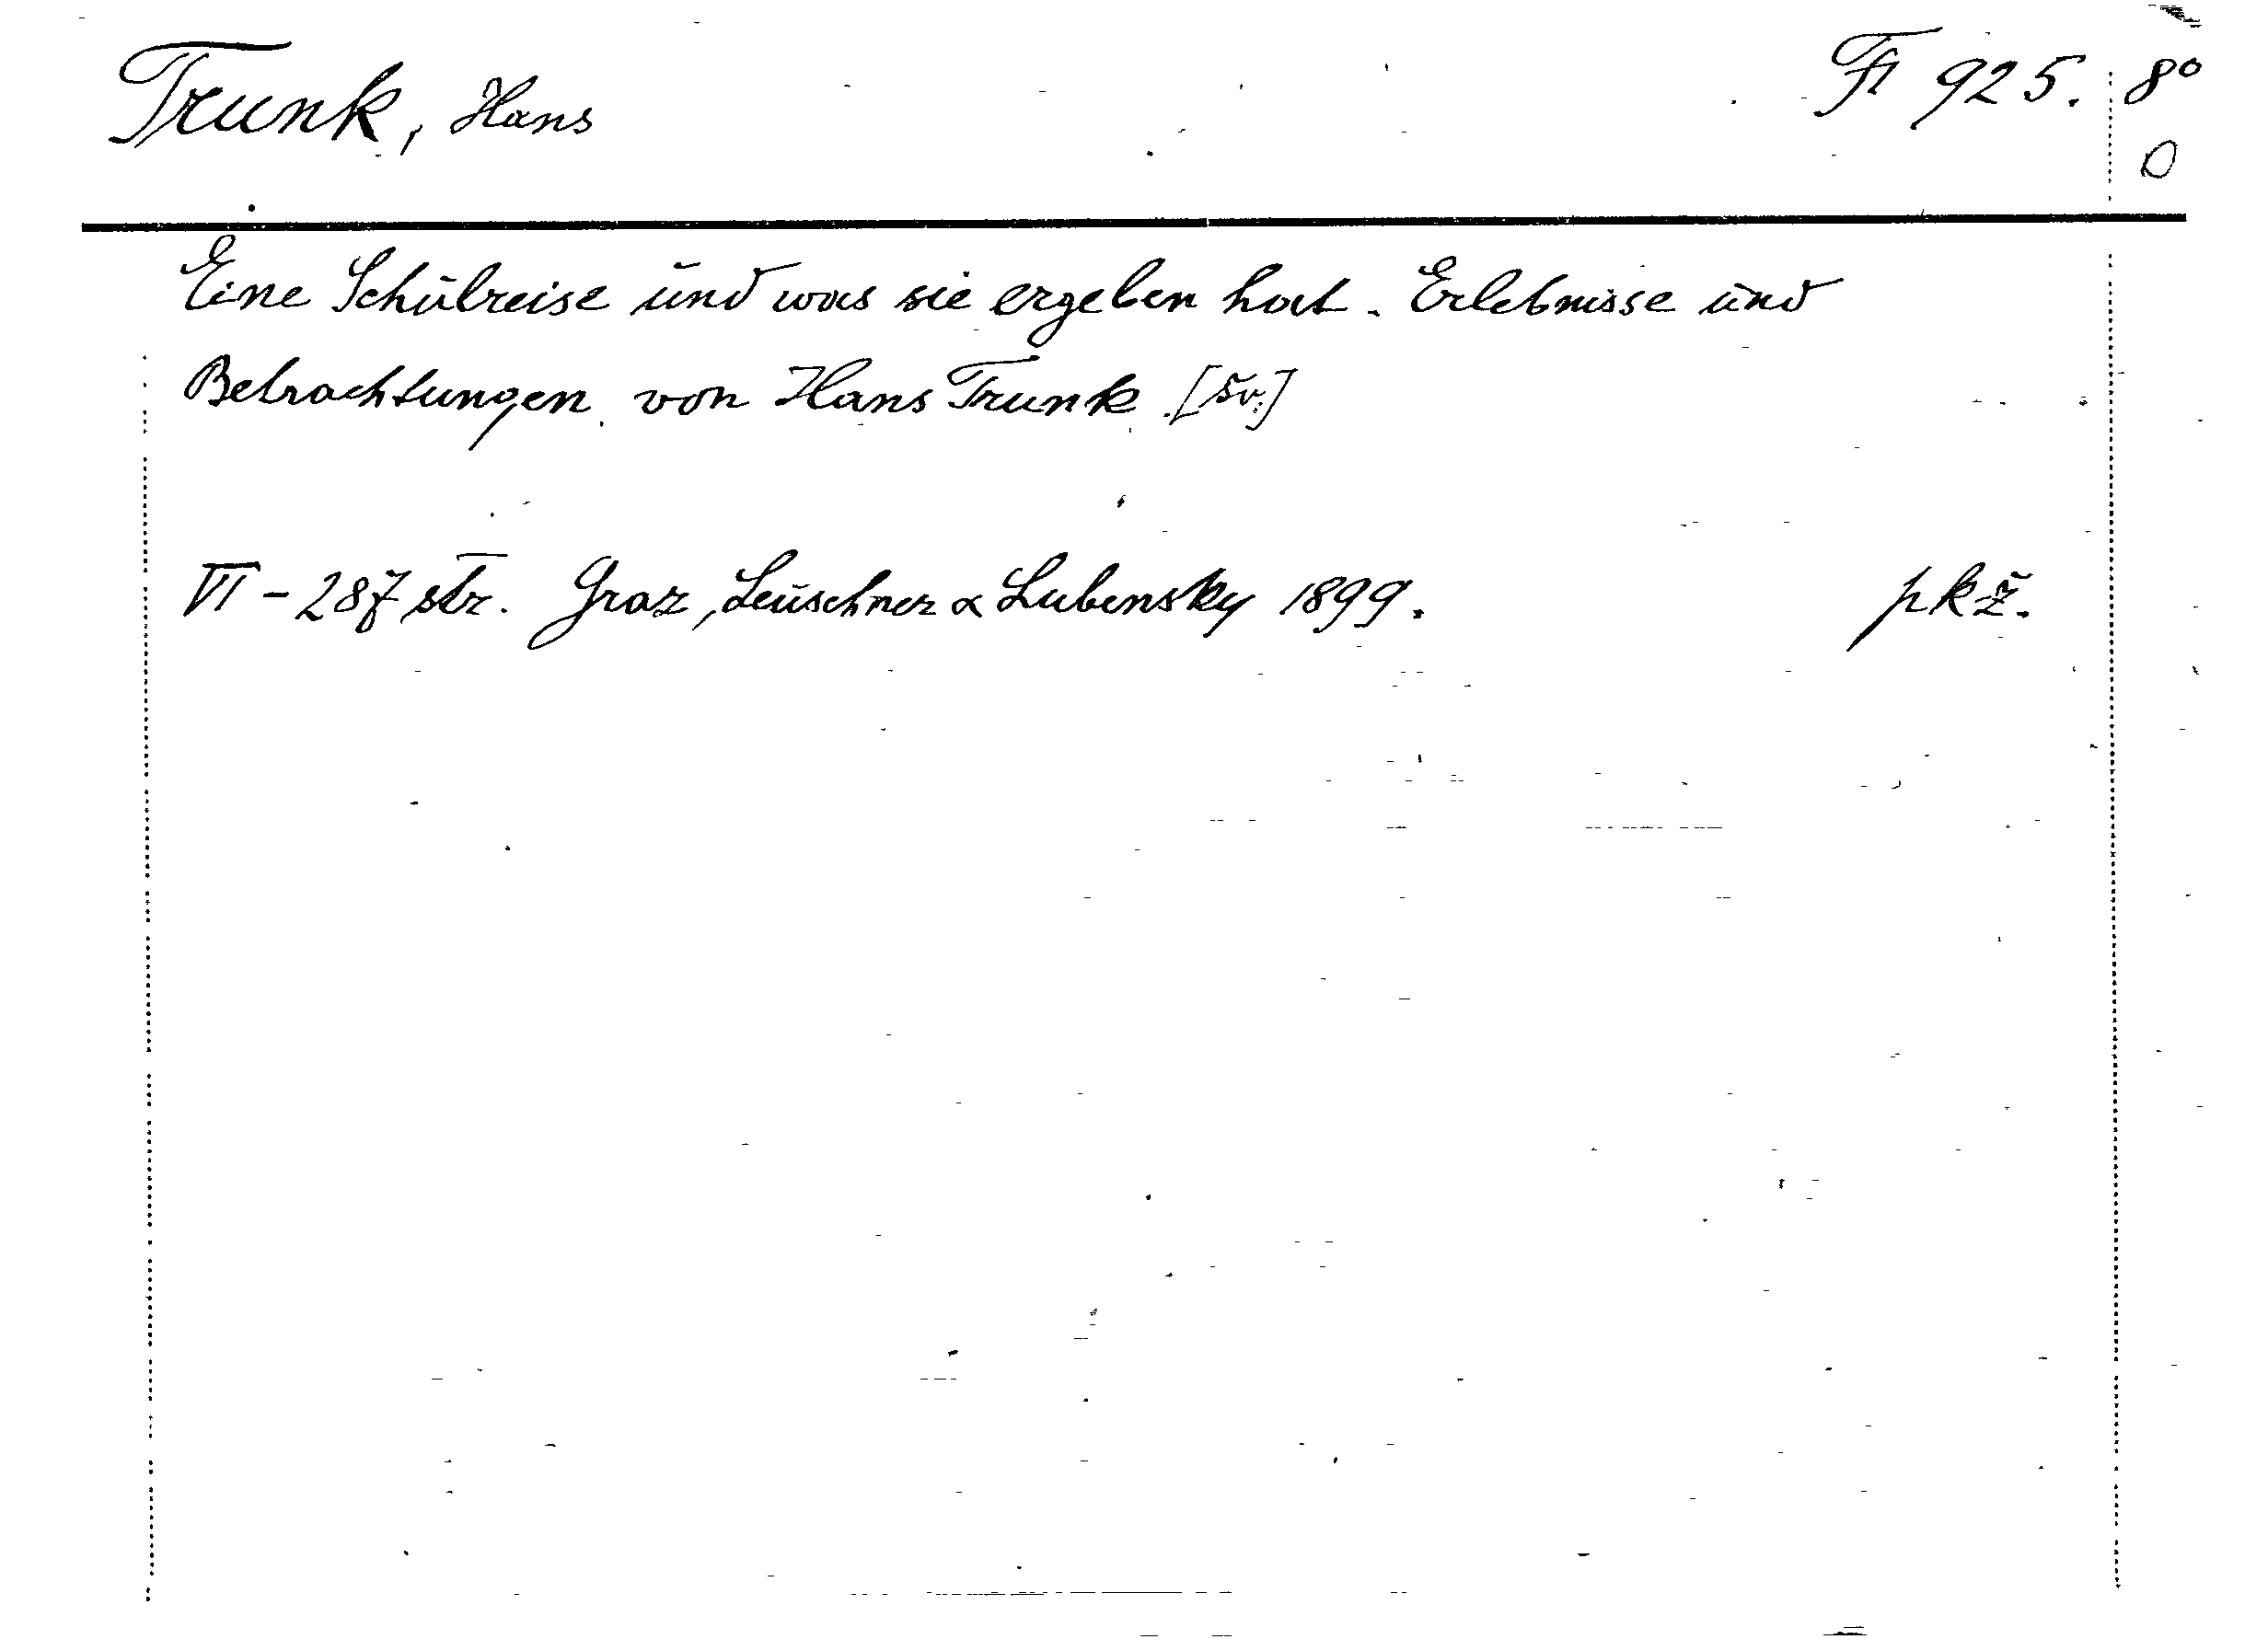 Trunk, Hans F 925. 8°
O
Eine Schŭlreise ŭnd was sie ergeben hat. Erlebnisse ŭnd
Betrachtungen von Hans Trunk. [Šv.]
VI - 287 str. Graz, Leŭschner & Lubensky 1899. pkž.